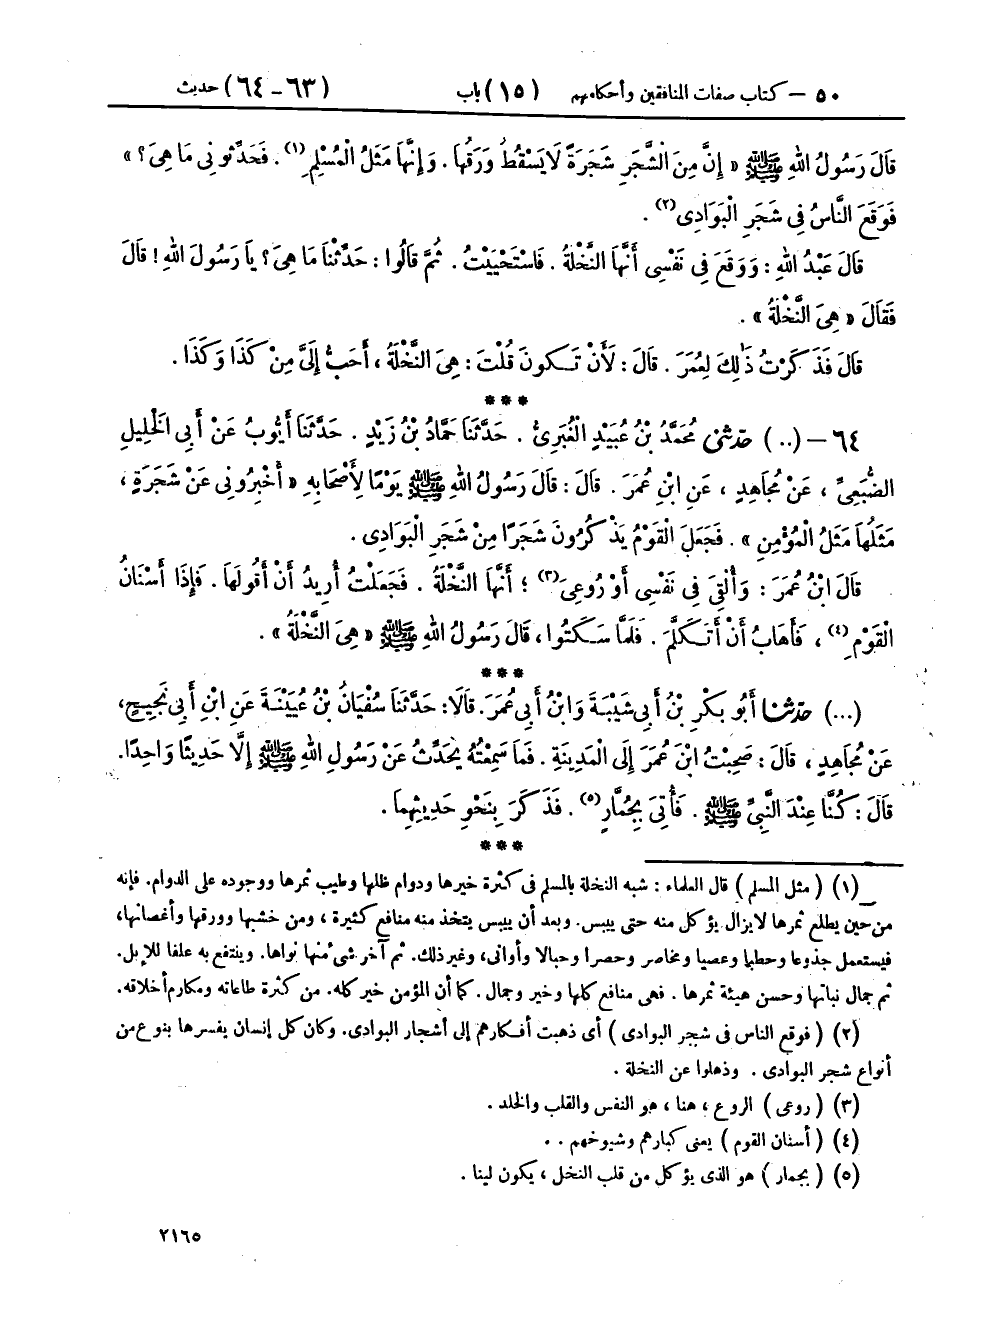 ٥٠ – كتاب صفات المنافقين وأحكامهم (١٥) باب (٦٣–٦٤) حديث
قَالَ رَسُولُ اللهِ ﷺ « إِنَّ مِنَ الشَّجَرِ شَجَرَةً لَا يَسْقُطُ وَرَقُهَا . وَإِنَّهَا مَثَلُ الْمُسْلِمِ(١) . فَحَدِّثُونِى مَا هِىَ ؟ »
فَوَقَعَ النَّاسُ فِى شَجَرِ الْبَوَادِى(٢) .
قَالَ عَبْدُ اللهِ : وَوَقَعَ فِى نَفْسِى أَنَّهَا النَّخْلَةُ . فَاسْتَحْيَيْتُ . ثُمَّ قَالُوا : حَدِّثْنَا مَا هِىَ ؟ يَا رَسُولَ اللهِ ! قَالَ
فَقَالَ « هِىَ النَّخْلَةُ » .
قَالَ فَذَكَرْتُ ذَٰلِكَ لِعُمَرَ . قَالَ : لَأَنْ تَكُونَ قُلْتَ : هِىَ النَّخْلَةُ ، أَحَبُّ إِلَىَّ مِنْ كَذَا وَكَذَا .
***
٦٤ – (..) حدّثنى مُحَمَّدُ بْنُ عُبَيْدٍ الْغُبَرِىُّ . حَدَّثَنَا حَمَّادُ بْنُ زَيْدٍ . حَدَّثَنَا أَيُّوبُ عَنْ أَبِى الْخَلِيلِ
الضُّبَعِىِّ ، عَنْ مُجَاهِدٍ ، عَنِ ابْنِ عُمَرَ . قَالَ : قَالَ رَسُولُ اللهِ ﷺ يَوْمًا لِأَصْحَابِهِ « أَخْبِرُونِى عَنْ شَجَرَةٍ ،
مَثَلُهَا مَثَلُ الْمُؤْمِنِ » . فَجَعَلَ الْقَوْمُ يَذْكُرُونَ شَجَرًا مِنْ شَجَرِ الْبَوَادِى .
قَالَ ابْنُ عُمَرَ : وَأُلْقِىَ فِى نَفْسِى أَوْ رُوعِىَ(٣) ؛ أَنَّهَا النَّخْلَةُ . فَجَعَلْتُ أُرِيدُ أَنْ أَقُولَهَا . فَإِذَا أَسْنَانُ
الْقَوْمِ(٤) ، فَأَهَابُ أَنْ أَتَكَلَّمَ . فَلَمَّا سَكَتُوا ، قَالَ رَسُولُ اللهِ ﷺ « هِىَ النَّخْلَةُ » .
***
(...) حدّثنا أَبُو بَكْرِ بْنُ أَبِى شَيْبَةَ وَابْنُ أَبِى عُمَرَ . قَالَا : حَدَّثَنَا سُفْيَانُ بْنُ عُيَيْنَةَ عَنِ ابْنِ أَبِى نَجِيحٍ ،
عَنْ مُجَاهِدٍ ، قَالَ : صَحِبْتُ ابْنَ عُمَرَ إِلَى الْمَدِينَةِ . فَمَا سَمِعْتُهُ يُحَدِّثُ عَنْ رَسُولِ اللهِ ﷺ إِلَّا حَدِيثًا وَاحِدًا .
قَالَ : كُنَّا عِنْدَ النَّبِىِّ ﷺ . فَأُتِىَ بِجُمَّارٍ(٥) . فَذَكَرَ بِنَحْوِ حَدِيثِهِمَا .
***
(١) ( مثل المسلم ) قال العلماء : شبه النخلة بالمسلم فى كثرة خيرها ودوام ظلها وطيب ثمرها ووجوده على الدوام . فإنه
من حين يطلع ثمرها لا يزال يؤكل منه حتى ييبس . وبعد أن ييبس يتخذ منه منافع كثيرة ، ومن خشبها وورقها وأغصانها ،
فيستعمل جذوعا وحطبا وعصيا ومخاصر وحصرا وحبالا وأوانى ، وغير ذلك . ثم آخر شىء منها نواها . وينتفع به علفا للإبل .
ثم جمال نباتها وحسن هيئة ثمرها . فهى منافع كلها وخير وجمال . كما أن المؤمن خير كله . من كثرة طاعاته ومكارم أخلاقه .
(٢) ( فوقع الناس فى شجر البوادى ) أى ذهبت أفكارهم إلى أشجار البوادى . وكان كل إنسان يفسرها بنوع من
أنواع شجر البوادى . وذهلوا عن النخلة .
(٣) ( روعى ) الروع ، هنا ، هو النفس والقلب والخلد .
(٤) ( أسنان القوم ) يعنى كبارهم وشيوخهم . .
(٥) ( بجمار ) هو الذى يؤكل من قلب النخل ، يكون لينا .
٢١٦٥